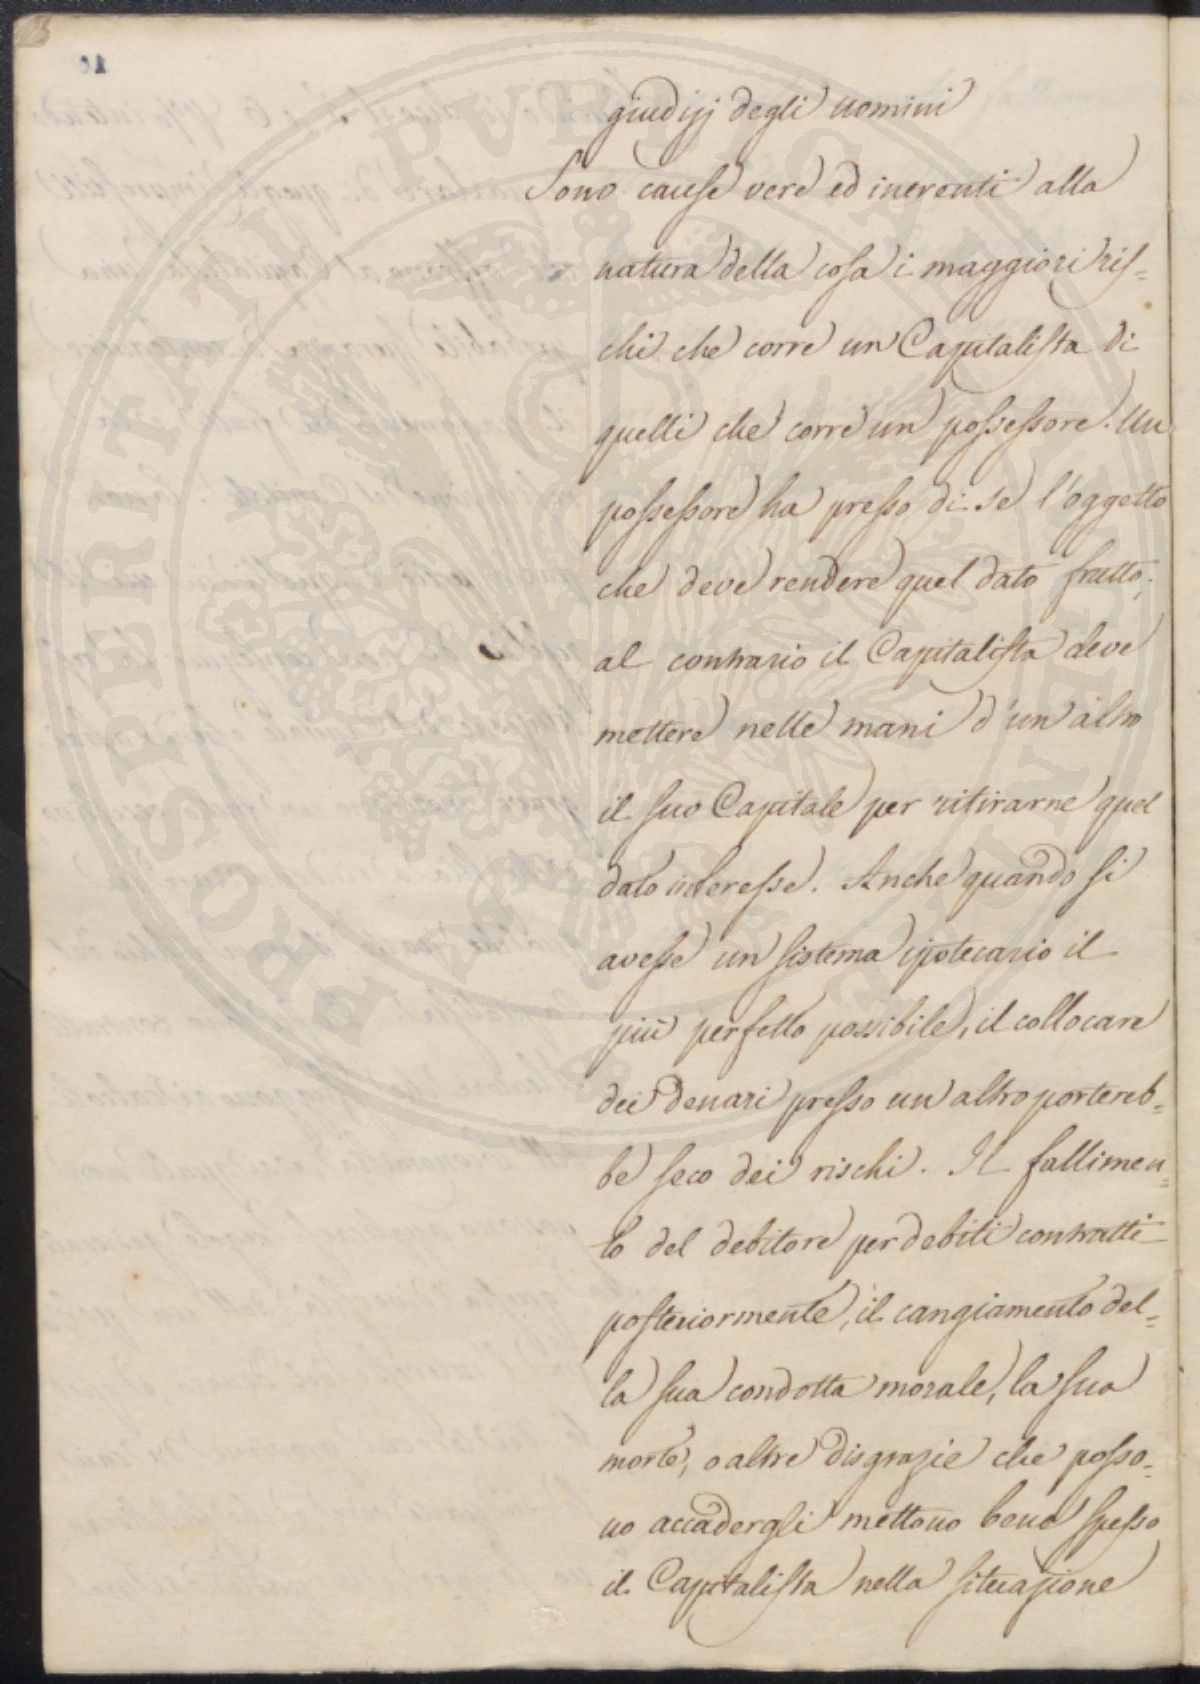 giudizj degli uomini
Sono cause vere ed inerenti alla
natura della cosa i maggiori ris=
chi che corre un Capitalista di
quelli che corre un possessore. Un
possessore ha presso di se l'oggetto
che deve rendere quel dato frutto;
al contrario il Capitalista deve
mettere nelle mani d'un altro
il suo Capitale per ritirarne quel
dato interesse. Anche quando si
avesse un sistema ipotecario il
più perfetto possibile, il collocare
dei denari presso un altro portereb=
be seco dei rischi. Il fallimen=
to del debitore per debiti contratti
posteriormente, il cangiamento del=
la sua condotta morale, la sua
morte, o altre disgrazie che posso=
no accadergli mettono bene spesso
il Capitalista nella situazione
PROSPERITATI PUBLICAE